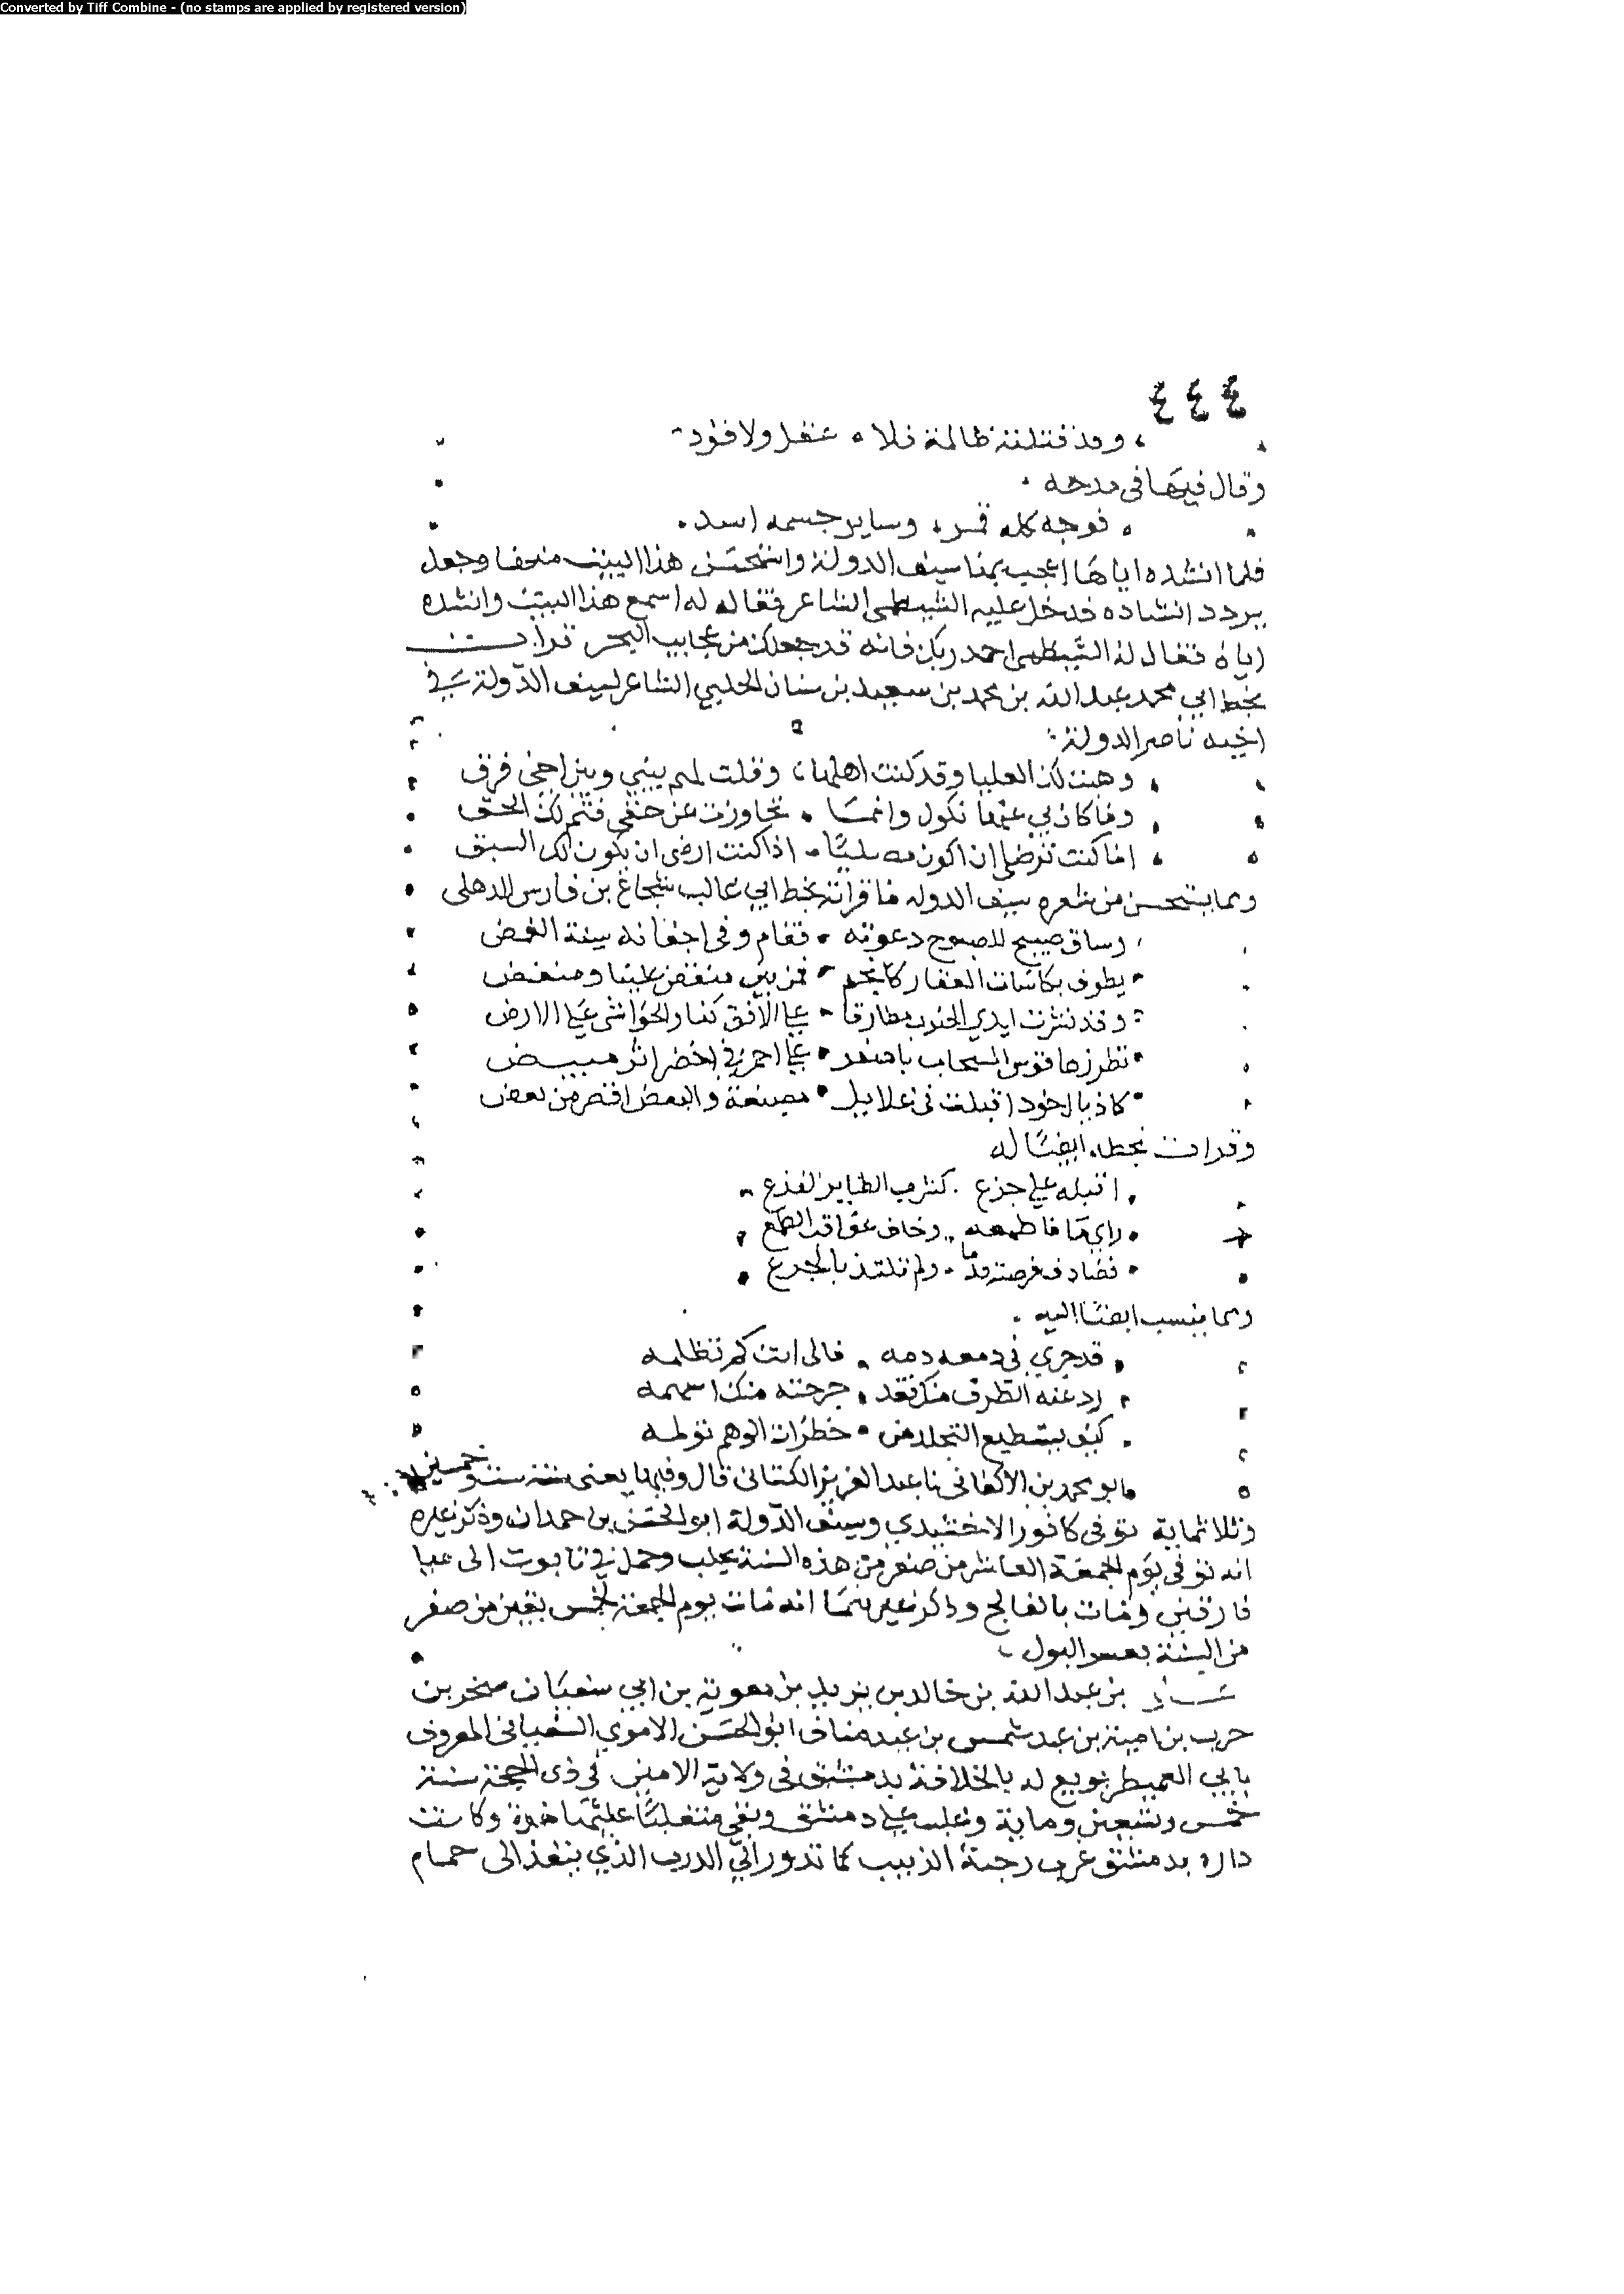 Converted by Tiff Combine - (no stamps are applied by registered version)
٤٤٤
وقد قتلته ظالمة فلا عقل ولا قود
وقال فيها في مدحه
فوجه كله قمر وساير جسمه اسد
فلما انشده اياها اعجب بها سيف الدولة واستحسن هذا البيت منها وجعل
يردد انشاده فدخل عليه الشيظمى الشاعر فقال له اسمع هذا البيت وانشده
اياه فقال له الشيظمى احمد ربك فانه قد جعلك من عجايب البحر قرات
بخط ابي محمد عبد الله بن محمد بن سعيد بن سنان الحلبي الشاعر لسيف الدولة في
اخيه ناصر الدولة
وهبت لك العليا وقد كنت اهلها وقلت لهم بيني وبين اخي فرق
وما كان بي عنها نكول وانما تجاوزت عن حقي فتم لك الحق
اما كنت ترضى ان اكون مصليا اذا كنت ارضى ان يكون لك السبق
ومما يستحسن من شعره سيف الدوله ما قراته بخط ابي غالب شجاع بن فارس الذهلى
وساق صبيح للصبوح دعوته فقام وفي اجفانه سنة الغمض
يطوف بكاسات العقار كانجم فمن بين منقض علينا ومنفض
وقد نشرت ايدي الجنوب مطارفا على الافق كنا والحواشي على الارض
تطرزها قوس السحاب باصفر على احمر في اخضر اثر مبيض
كاذيال خود اقبلت في غلايل مصبغة والبعض اقصر من بعض
وقرات بخطه ايضا له
اقبله على جزع كشرب الطاير الفزع
راى ما فاطمعه وخاف عواقب الطمع
فصادف فرصة فدنا ولم يلتذ بالجرع
ومما ينسب ايضا اليه
قد جرى في دمعه دمه فالى انت كم تظلمه
رد عنه الطرف منك فقد جرحته منك اسهمه
كيف يستطيع التجلد من خطرات الوهم تولمه
ابو محمد بن الاكفاني نا عبد العزيز الكتاني قال وفيها يعني سنة ست وخمسين
وثلاثماية توفي كافور الاخشيدي وسيف الدولة ابو الحسن بن حمدان وذكر غيره
انه توفي يوم الجمعة العاشر من صفر من هذه السنة بحلب وحمل في تابوت الى ميا
فارقين ومات بالفالج وذكر غيرهما انه مات يوم الجمعة لخمس بقين من صفر
من السنة بعسر البول
بن عبد الله بن خالد بن يزيد بن معوية بن ابي سفيان صخر بن
حرب بن امية بن عبد شمس بن عبد مناف ابو الحسن الاموي السفياني المعروف
بابي العميطر بويع له بالخلافة بدمشق في ولاية الامين في ذي الحجة سنة
خمس وتسعين وماية وغلب على دمشق وبقي متغلبا عليها مدة وكانت
داره بدمشق غرب رحبة الزبيب كما تدور الى الدرب الذي ينفذ الى حمام